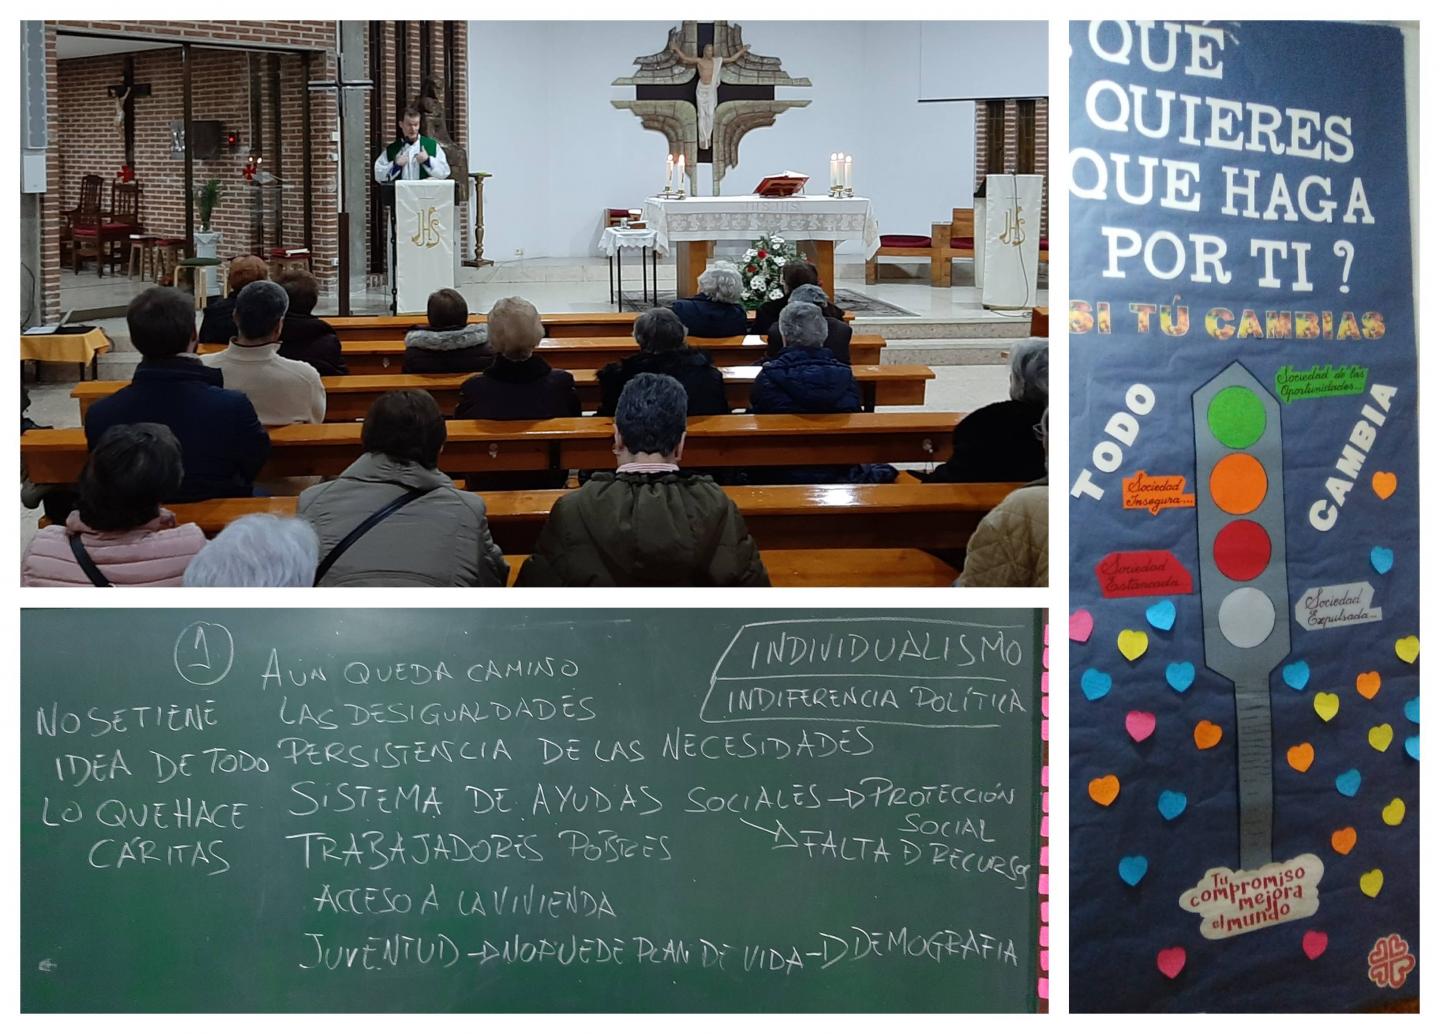 JHS
JHS
1
AÚN QUEDA CAMINO
INDIVIDUALISMO
INDIFERENCIA POLÍTICA
NO SE TIENE
IDEA DE TODO
LO QUE HACE
CÁRITAS
LAS DESIGUALDADES
PERSISTENCIA DE LAS NECESIDADES
SISTEMA DE AYUDAS SOCIALES → PROTECCIÓN
SOCIAL
→ FALTA D RECURSOS
TRABAJADORES POBRES
ACCESO A LA VIVIENDA
JUVENTUD → NO PUEDE PLAN DE VIDA → DEMOGRAFIA
¿QUÉ
QUIERES
QUE HAGA
POR TI?
SI TÚ CAMBIAS
TODO
CAMBIA
Sociedad de las
Oportunidades...
Sociedad
Insegura...
Sociedad
Estancada
Sociedad
Expulsada...
Tu
compromiso
mejora
el mundo